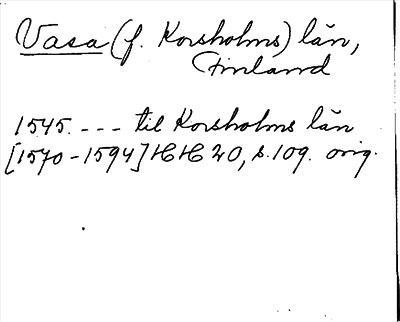 Vasa (f. Korsholms) län,
Finland
1545. --- til Korsholms län
[1570-1594] HH 20, s. 109. orig.